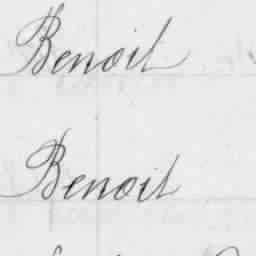 Benoit
Benoit